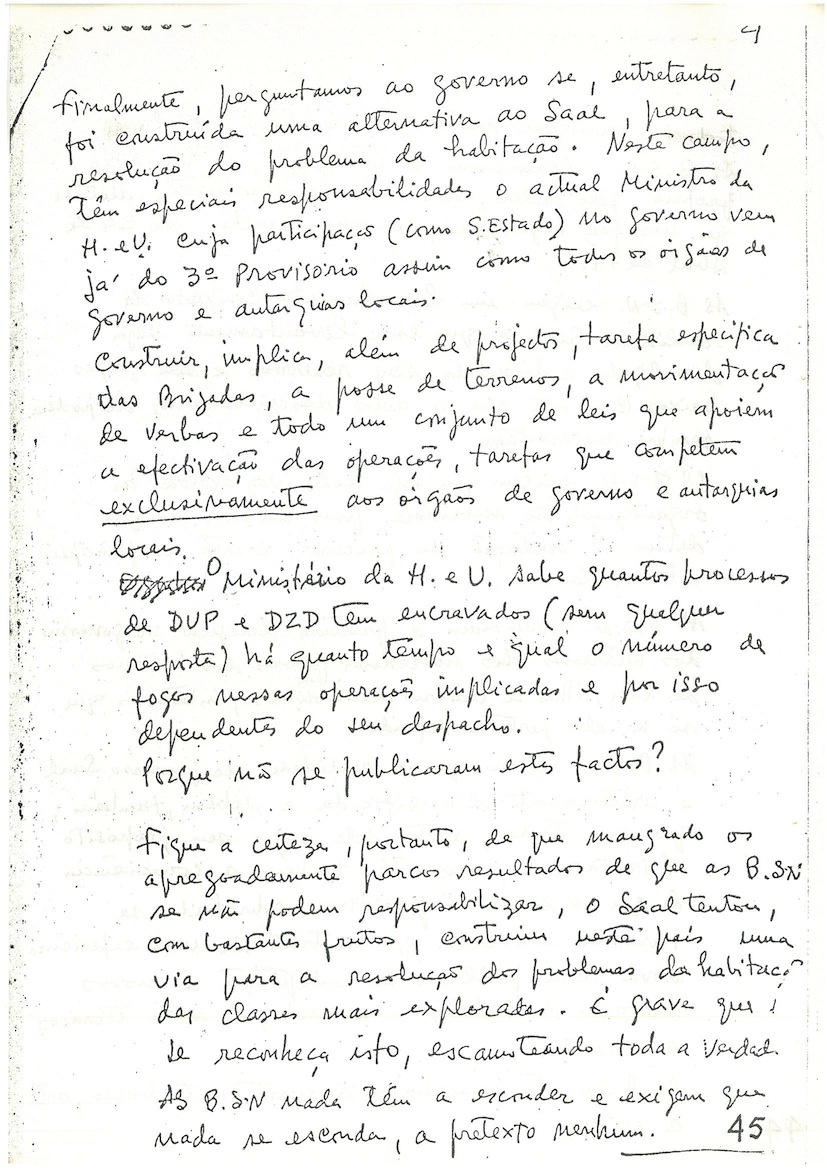 4
Finalmente, perguntamos ao governo se, entretanto,
foi construída uma alternativa ao Saal, para a
resolução do problema da habitação. Neste campo,
têm especiais responsabilidades o actual Ministro da
H. e U. cuja participação (como S. Estado) no governo vem
já do 3º Provisório assim como todos os órgãos de
governo e autarquias locais.
Construir, implica, além de projectos, tarefa específica
das Brigadas, a posse de terrenos, a movimentação
de verbas e todo um conjunto de leis que apoiem
a efectivação das operações, tarefas que competem
exclusivamente aos órgãos de governo e autarquias
locais.
O Ministério da H. e U. sabe quantos processos
de DUP e DZD têm encravados (sem qualquer
resposta) há quanto tempo e qual o número de
fogos nessas operações implicadas e por isso
dependentes do seu despacho.
Porque não se publicaram estes factos?
Fique a certeza, portanto, de que maugrado os
apregoadamente parcos resultados de que as B.S.N
se não podem responsabilizar, o Saal tentou,
com bastantes frutos, construir neste país uma
via para a resolução dos problemas da habitação
das classes mais exploradas. É grave que
se reconheça isto, escamoteando toda a verdade.
AS B.S.N nada têm a esconder e exigem que
nada se esconda, a pretexto nenhum.
45